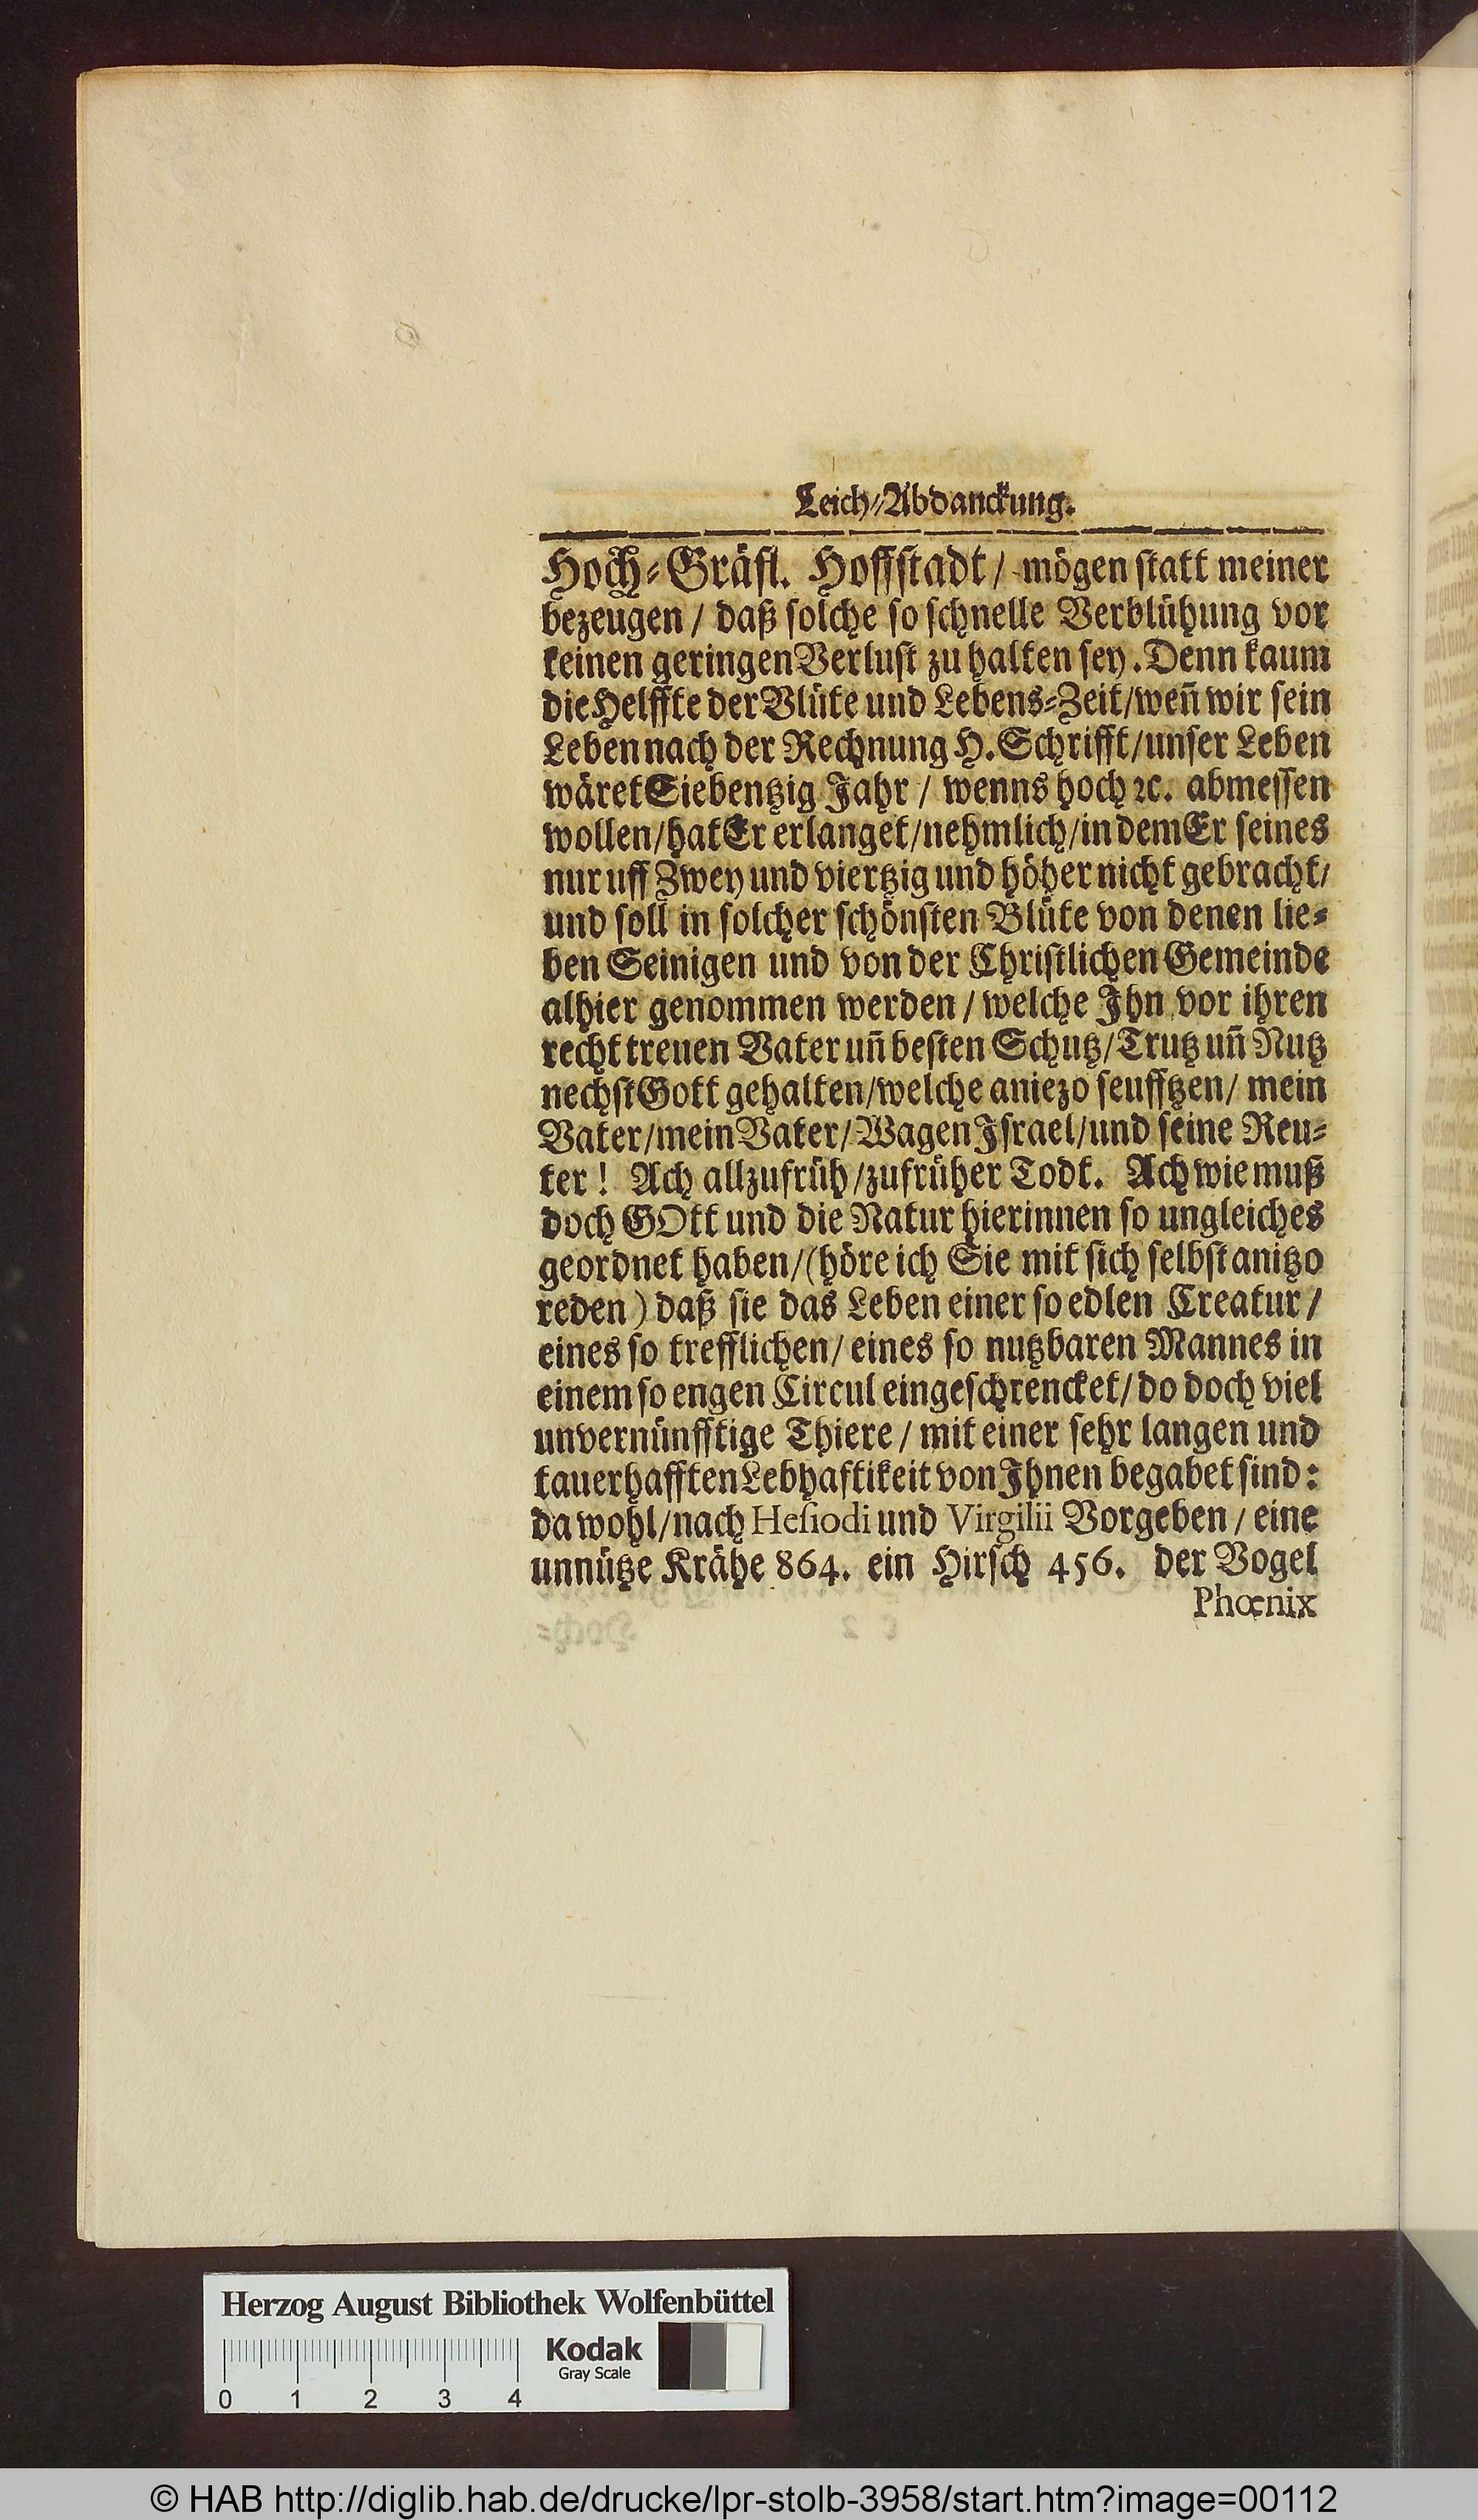 Leich-Abdanckung.
Hoch-Gräfl. Hoffstadt / mögen statt meiner
bezeugen / daß solche so schnelle Verblühung vor
keinen geringen Verlust zu halten sey. Denn kaum
die Helffte der Blüte und Lebens-Zeit/wen̄ wir sein
Leben nach der Rechnung H. Schrifft/unser Leben
wäret Siebentzig Jahr / wenns hoch ꝛc. abmessen
wollen/hat Er erlanget/nehmlich/in dem Er seines
nur uff Zwey und viertzig und höher nicht gebracht/
und soll in solcher schönsten Blüte von denen lie-
ben Seinigen und von der Christlichen Gemeinde
alhier genommen werden / welche Ihn vor ihren
recht treuen Vater un̄ besten Schutz/Trutz un̄ Nutz
nechst Gott gehalten/welche aniezo seufftzen/ mein
Vater/mein Vater/Wagen Israel/und seine Reu-
ter! Ach allzufrüh/zufrüher Todt. Ach wie muß
doch GOtt und die Natur hierinnen so ungleiches
geordnet haben/(höre ich Sie mit sich selbst anitzo
reden) daß sie das Leben einer so edlen Creatur /
eines so trefflichen/ eines so nutzbaren Mannes in
einem so engen Circul eingeschrencket/do doch viel
unvernünfftige Thiere / mit einer sehr langen und
tauerhafften Lebhaftikeit von Ihnen begabet sind:
da wohl/nach Hesiodi und Virgilii Vorgeben / eine
unnütze Krähe 864. ein Hirsch 456. der Vogel
Phœnix
Herzog August Bibliothek Wolfenbüttel
Kodak
Gray Scale
0 1 2 3 4
© HAB http://diglib.hab.de/drucke/lpr-stolb-3958/start.htm?image=00112